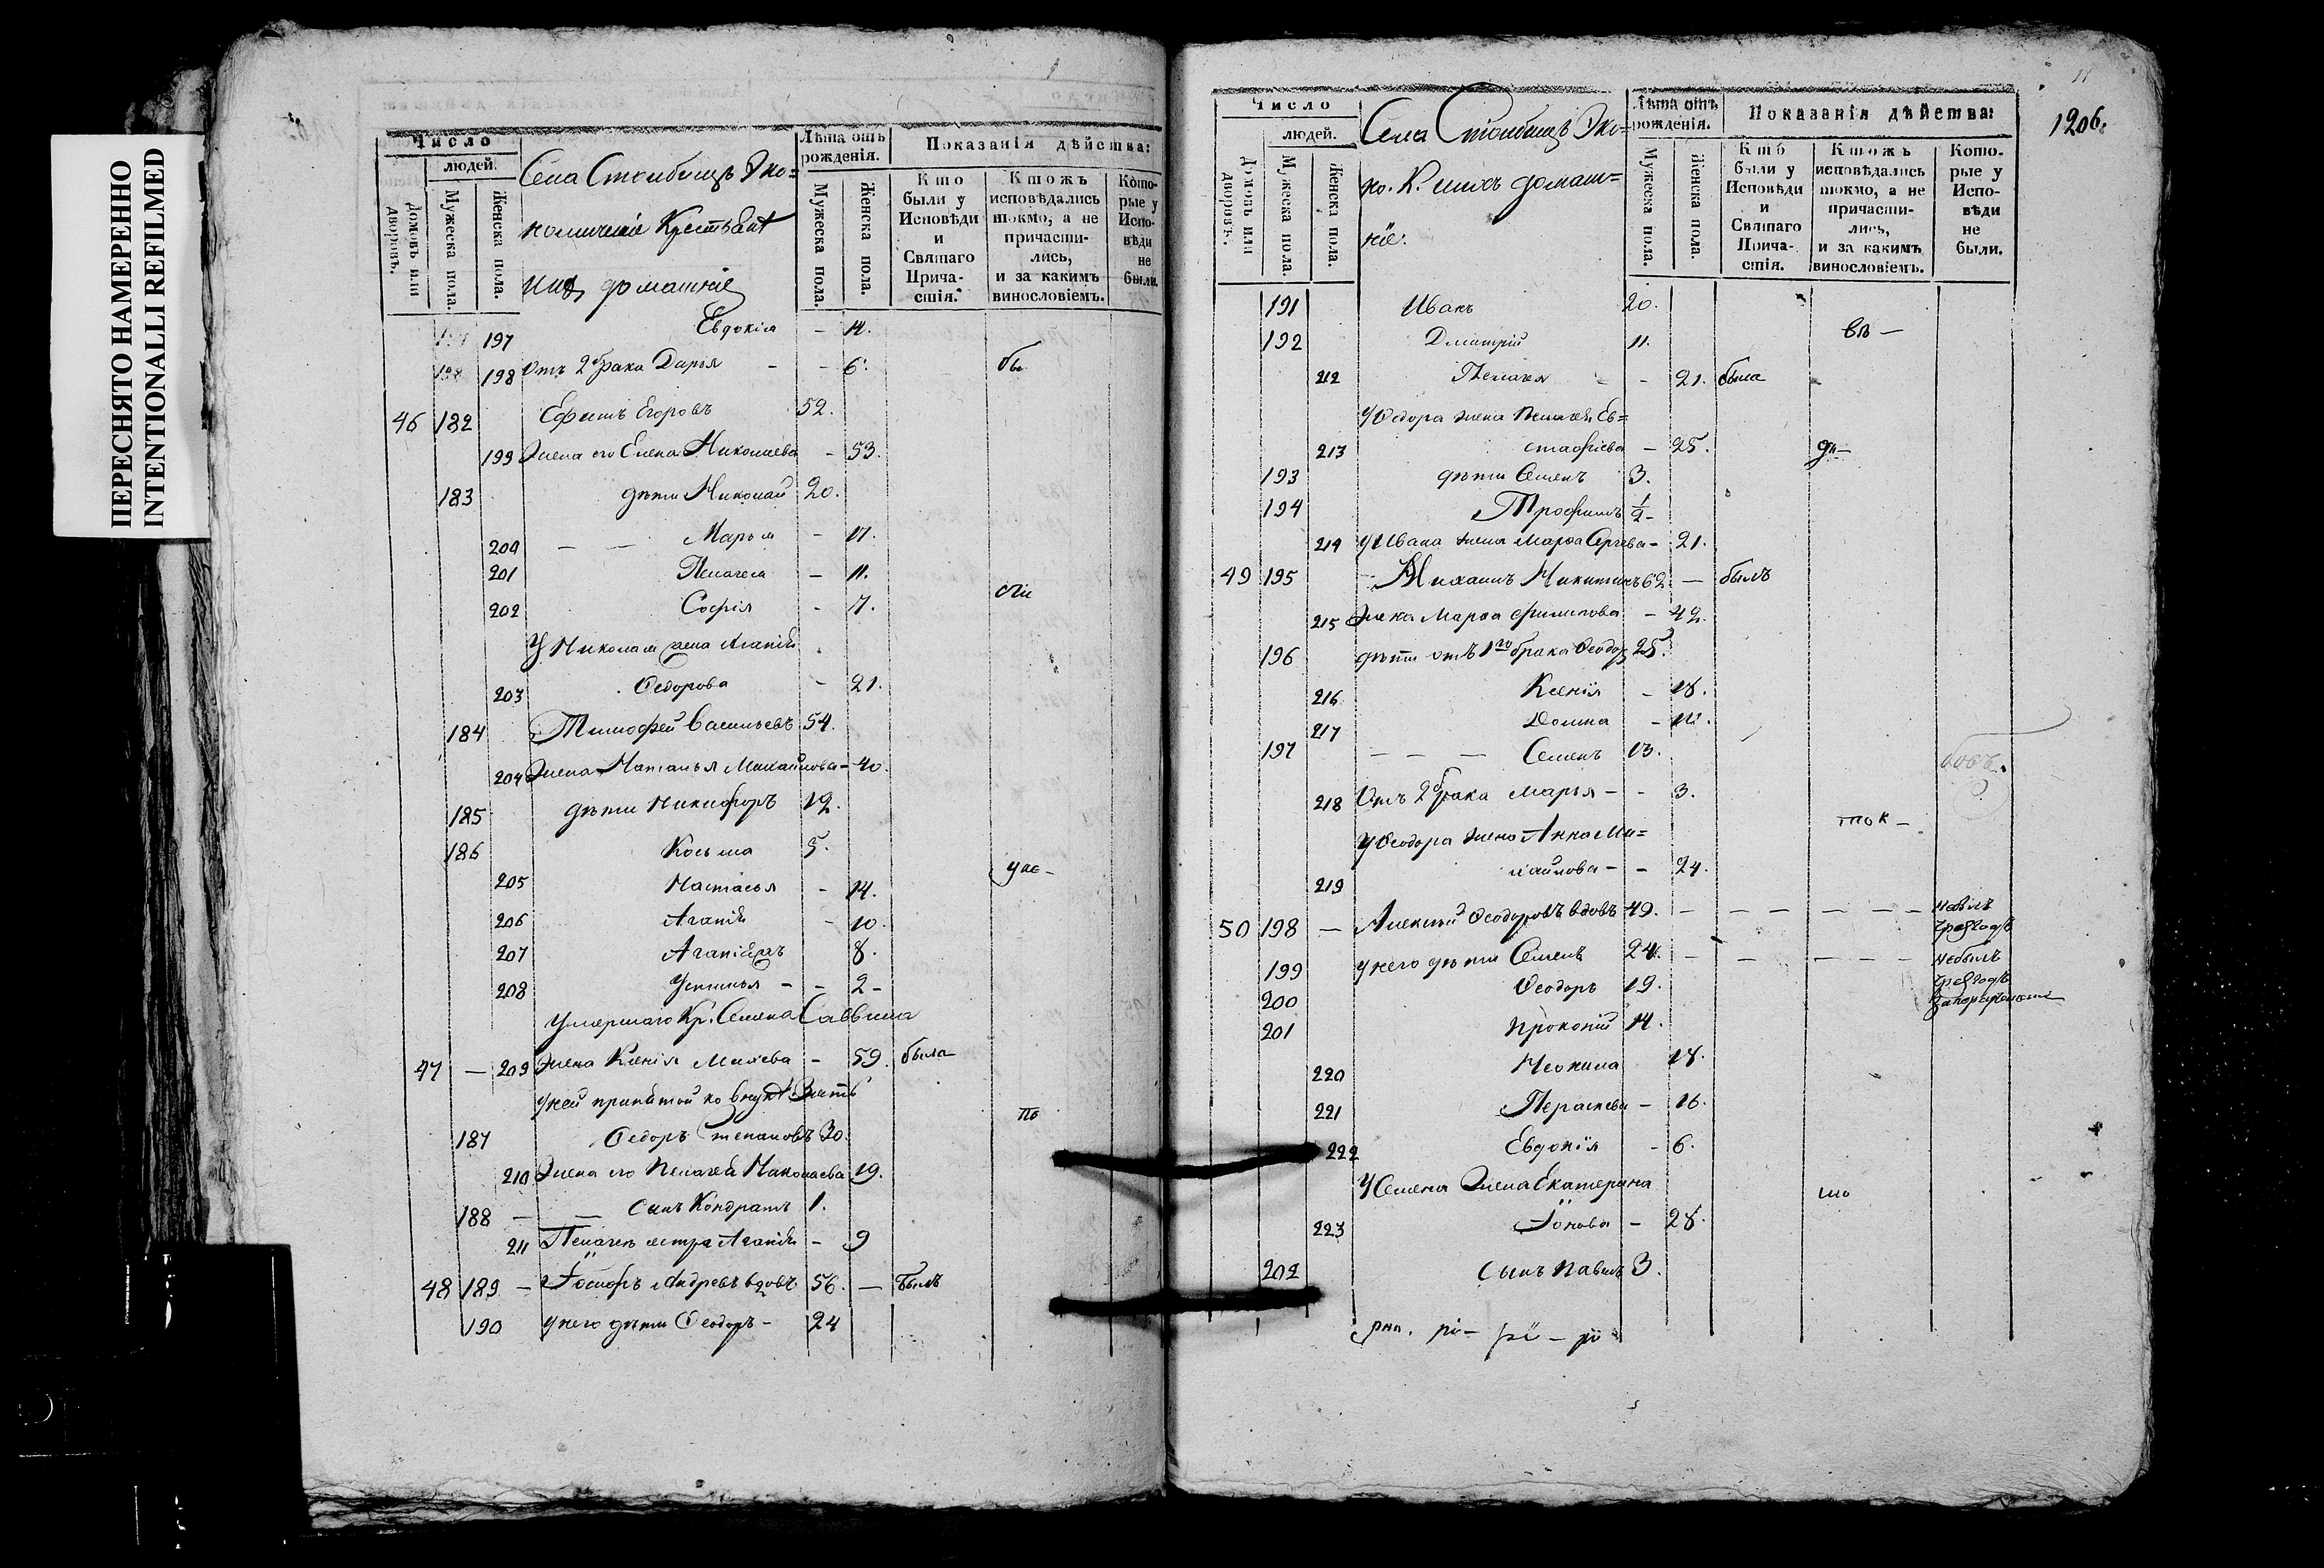 ПЕРЕСНЯТО НАМЕРЕННО
INTENTIONALLI REFILMED
Число
людей.
Домовъ или дворовъ.
Мужеска пола.
Женска пола.
Села Столбищъ Эко=
номическіе Крестьяне
ихъ домашніе
Лѣта отъ рожденія.
Мужеска пола.
Женска пола.
Показанія дѣйства:
Кто были у Исповѣди и Святаго Прича-стія.
Ктожъ исповѣдались токмо, а не причасти-лись, и за какимъ винословіемъ.
Кото-рые у Испо-вѣди не были.
197 Евдокія - 14.
198 198 Отъ 2 брака Дарья - - 6. бы
46 182 Ефимъ Егоровъ 52.
199 Жена его Елена Николаева - 53.
183 дѣти Николай 20.
200 — — Марья - 17.
201 Пелагея - 11.
202 Софія - 7.
У Николая жена Агапія
203 Федорова - 21.
184 Тимофей Васильевъ 54.
204 Жена Наталья Михайлова - 40.
185 дѣти Никифоръ 12.
186 Косьма 5.
205 Настасья - 14.
206 Агапія - 10.
207 8.
208 Устинья - - 2 -
Умершаго Кр. Семена Саввина
47 — 209 Жена Ксенія - 59. была
У ней принятой ко внукѣ Зять
187 Федоръ Степановъ 30.
210 Жена его Пелагея Николаева 19.
188 — — сынъ Кондратъ 1.
211 Пелагеи сестра Агапія - 9
48 189 — Іосифъ Андревъ вдовъ 56. — былъ
190 У него дѣти Феодоръ - 24
1206.
Число
людей.
Домовъ или дворовъ.
Мужеска пола.
Женска пола.
Села Столбищъ Эко=
но. К. ихъ домаш=
ніе.
Лѣта отъ рожденія.
Мужеска пола.
Женска пола.
Показанія дѣйства:
Кто были у Исповѣди и Святаго Прича-стія.
Ктожъ исповѣдались токмо, а не причасти-лись, и за какимъ винословіемъ.
Кото-рые у Испо-вѣди не были.
191 Иванъ 20.
192 Димитрій 11. въ —
212 Пелагея - - 21. была
У Федора жена Пелагея Ев=
213 стафіева - 25.
193 дѣти Семенъ 3.
194 Трофимъ 1/2 -
214 У Ивана жена Марфа Сергева - 21.
49 195 — Михаилъ Никитинъ 62. — былъ
215 Жена Марфа Филипова - 42.
196 дѣти отъ 1го брака Феодор 25.
216 Ксенія - 18.
217 Домна
197 — — — Семенъ 13.
218 Отъ 2 брака Марья - - 3.
У Феодора жена Анна Ми=
219 хайлова - - 24.
50 198 — Алексѣй Феодоровъ вдовъ 49. — — — — — не былъ
199 У него дѣти Семенъ 24. — — — — — не былъ
200 Феодоръ 19.
201 Прокопій 14.
220 Неонила 18.
221 Параскева - 16.
222 Евдокія - 6.
У Семена Жена Екатерина
223 Іонова - 28.
202 сынъ Павелъ 3.